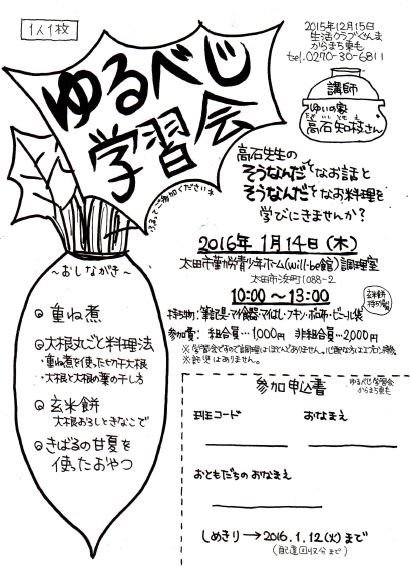 1人1枚
2015年12月15日
生活クラブぐんま
からまち東も
tel.0270-30-6811
ゆるべじ
学習会
ふるってご参加くださいネ
講師
ゆいの家
高石知枝さん
高石先生の
そうなんだ～なお話と
そうなんだ～なお料理を
学びにきませんか？
2016年1月14日(木)
太田市勤労青少年ホーム(will-be館)調理室
太田市浜町1088-2
10:00～13:00
持ち物：筆記具・マイ食器・マイはし・フキン・台ふき・ビニール袋
参加費：組合員…1,000円 非組合員…2,000円
※学習会ですので調理はほとんどありません。心配な方はエプロン持参
※託児はありません。
～おしながき～
◎重ね煮
◎大根丸ごと料理法
・重ね煮を使った切干大根
・大根と大根の葉の干し方
◎玄米餅
大根おろしときなこで
◎きばるの甘夏を
使ったおやつ
参加申込書
ゆるべじ学習会
からまち東も
班コード おなまえ
おともだちのおなまえ
しめきり→2016.1.12(火)まで
(配達回収分まで)